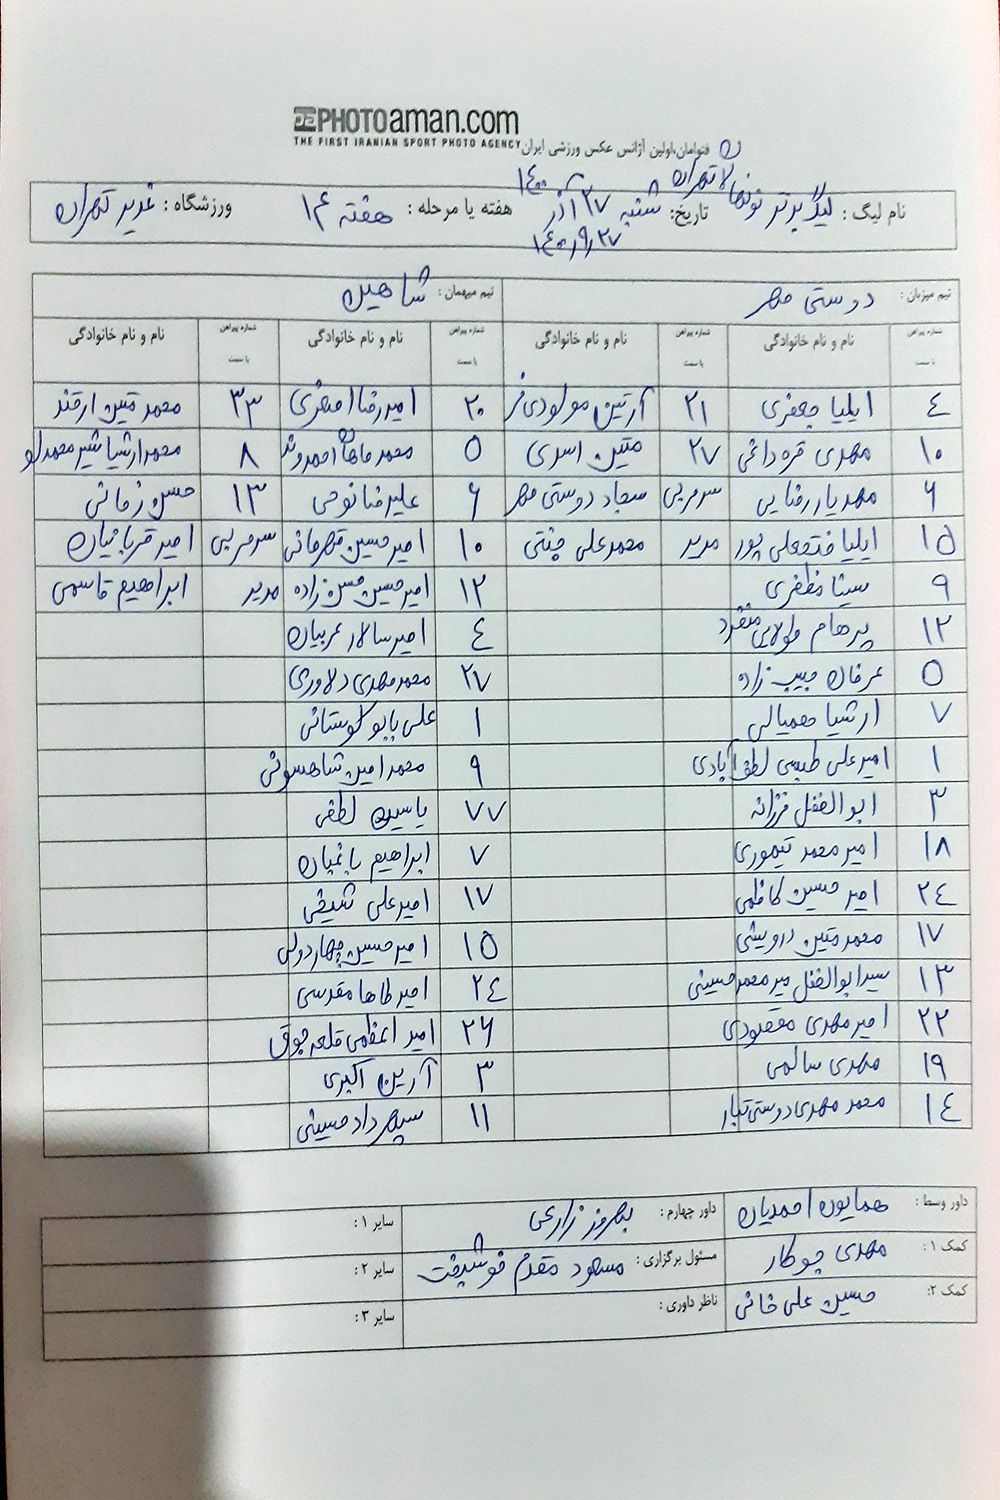 PHOTOaman.com
THE FIRST IRANIAN SPORT PHOTO AGENCY
فتوامان،اولین آژانس عکس ورزشی ایران
نام لیگ : لیگ برتر نونهالان تهران تاریخ: شنبه ۲۷ آذر ۱۴۰۰ هفته یا مرحله : هفته ۱۴ ورزشگاه : غدیر تهران
۱۴۰۰/۹/۲۷
تیم میزبان : دوستی مهر تیم میهمان : شاهین
شماره پیراهن یا سمت نام و نام خانوادگی شماره پیراهن یا سمت نام و نام خانوادگی شماره پیراهن یا سمت نام و نام خانوادگی شماره پیراهن یا سمت نام و نام خانوادگی
۴ ایلیا جعفری ۲۱ آرتین مولودی فر ۲۰ امیررضا اصغری ۳۳ محمد متین ارقند
۱۰ مهدی قره داغی ۲۷ متین اسدی ۵ محمد ماهان احمدوند ۸ محمد ارشیا شیرمحمدلو
۶ مهدیار رضایی سرمربی سجاد دوستی مهر ۶ علیرضا نوحی ۱۳ حسن زمانی
۱۵ ایلیا فتحعلی پور مدیر محمدعلی چنتی ۱۰ امیرحسین قهرمانی سرمربی امیر قربانیان
۹ سینا مظفری ۱۲ امیرحسین حسن زاده مدیر ابراهیم قاسمی
۱۲ پرهام طولابی منفرد ۴ امیرسالار عربیان
۵ عرفان حبیب زاده ۲۷ محمدمهدی دلاوری
۷ ارشیا حمیالی ۱ علی پاپو لوستانی
۱ امیرعلی طبیبی لطف آبادی ۹ محمدامین شاهسونی
۳ ابوالفضل فرزانه ۷۷ یاسین لطفی
۱۸ امیرمحمد تیموری ۷ ابراهیم باغبان
۲۴ امیرحسین کاظمی ۱۷ امیرعلی شیخی
۱۷ محمدمتین درویشی ۱۵ امیرحسین چهاردولی
۱۳ سیدابوالفضل میرمحمدحسینی ۲۴ امیرطاها مقدسی
۲۲ امیرمهدی مقصودی ۲۶ امیر اعظمی قلعه جوق
۱۹ مهدی سالمی ۳ آرین اکبری
۱۴ محمدمهدی دوستی تبار ۱۱ سپهرداد حسینی
داور وسط : همایون احمدیان داور چهارم : بهروز زارعی سایر ۱ :
کمک ۱ : مهدی جوکار مسئول برگزاری : مسعود مقدم خوشبخت سایر ۲ :
کمک ۲: حسین علی خانی ناظر داوری : سایر ۳ :